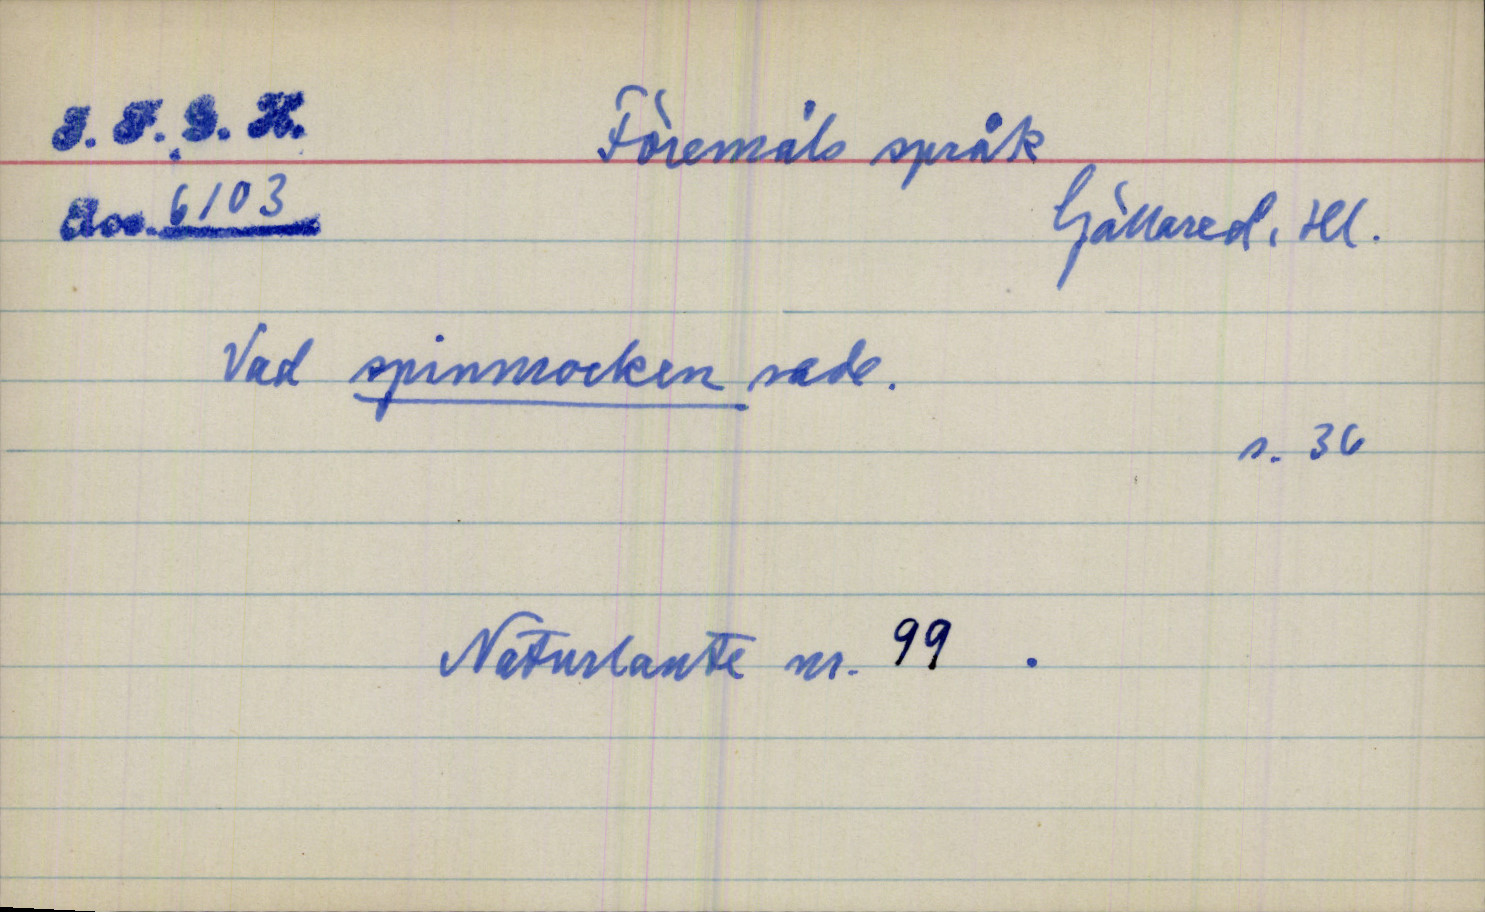 I. F. G. H.
Föremåls språk
Acc. 6103
Gällared, Hl.
Vad spinnrocken sade.
s. 36
Naturlante nr. 99 .